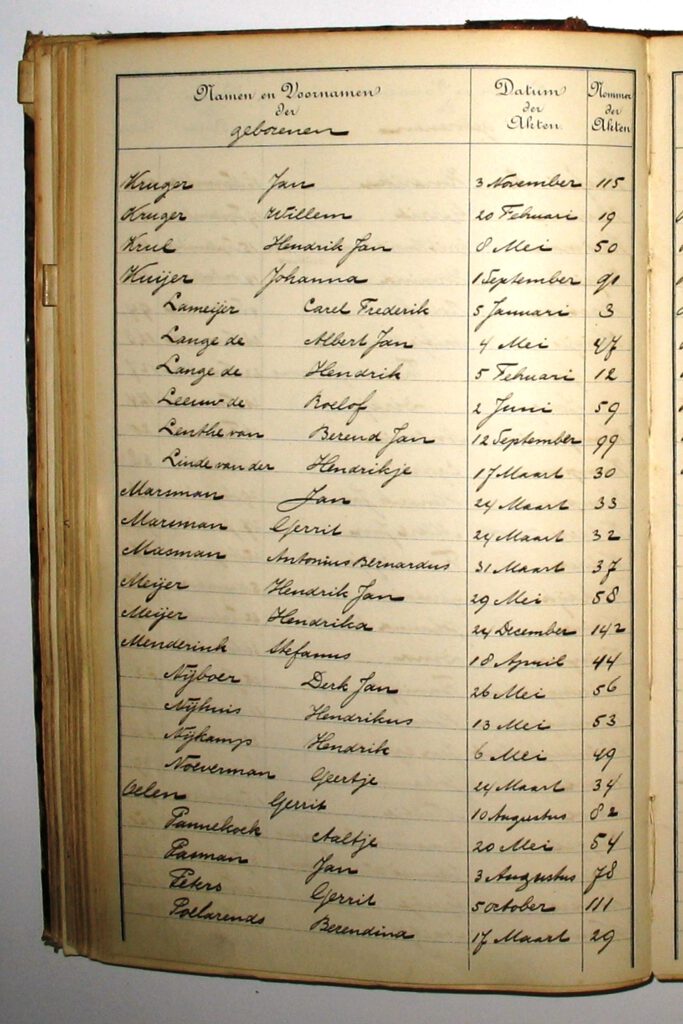 Namen en Voornamen Datum Nommer
der der der
geborenen Akten Akten
Kruger Jan 3 November 115
Kruger Willem 20 Febuari 19
Krul Hendrik Jan 8 Mei 50
Kuijer Johanna 1 September 91
Lameijer Carel Frederik 5 Januari 3
Lange de Albert Jan 4 Mei 47
Lange de Hendrik 5 Febuari 12
Leeuw de Roelof 2 Juni 59
Lenthe van Berend Jan 12 September 99
Linde van der Hendrikje 17 Maart 30
Marsman Jan 24 Maart 33
Marsman Gerrit 24 Maart 32
Masman Antonius Bernardus 31 Maart 37
Meijer Hendrik Jan 29 Mei 58
Meijer Hendrika 24 December 142
Menderink Stefanus 18 April 44
Nijboer Derk Jan 26 Mei 56
Nijhuis Hendrikus 13 Mei 53
Nijkamp Hendrik 6 Mei 49
Noeverman Geertje 24 Maart 34
Oelen Gerrit 10 Augustus 82
Pannekoek Aaltje 20 Mei 54
Pasman Jan 3 Augustus 78
Peters Gerrit 5 October 111
Poelarends Berendina 17 Maart 29